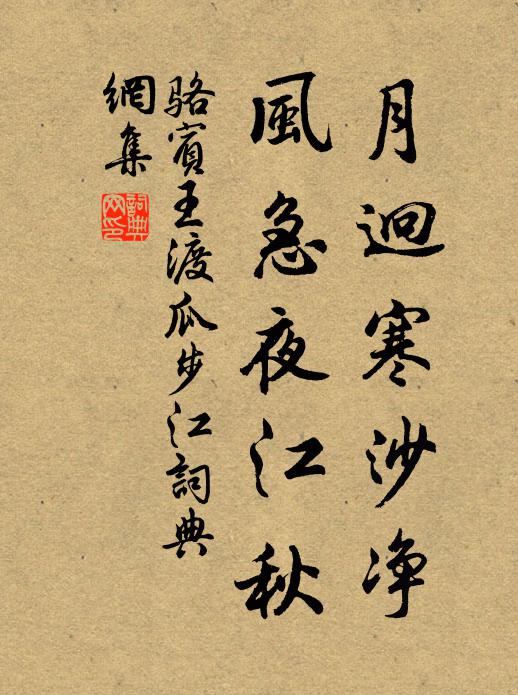 月迥寒沙净
風急夜江秋
駱賓王渡瓜步江詞典
網集
詞典
网印